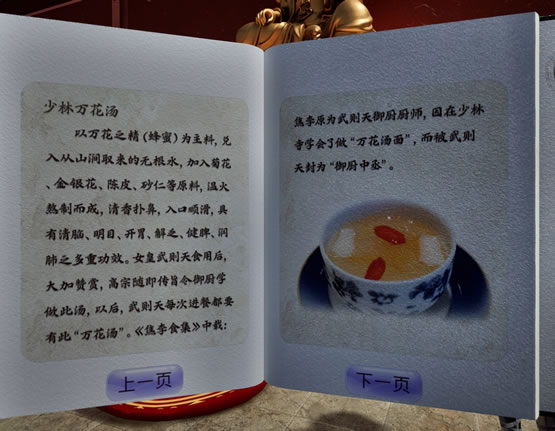 少林万花汤
以万花之精(蜂蜜)为主料,兑
入从山涧取来的无根水,加入菊花
、金银花、陈皮、砂仁等原料,温火
熬制而成,清香扑鼻,入口顺滑,具
有清脑、明目、开胃、解乏、健脾、润
肺之多重功效。女皇武则天食用后,
大加赞赏,高宗随即传旨令御厨学
做此汤,以后,武则天每次进餐都要
有此“万花汤”。《焦李食集》中载:
上一页
焦李原为武则天御厨厨师,因在少林
寺学会了做“万花汤面”,而被武则
天封为“御厨中丞”。
下一页